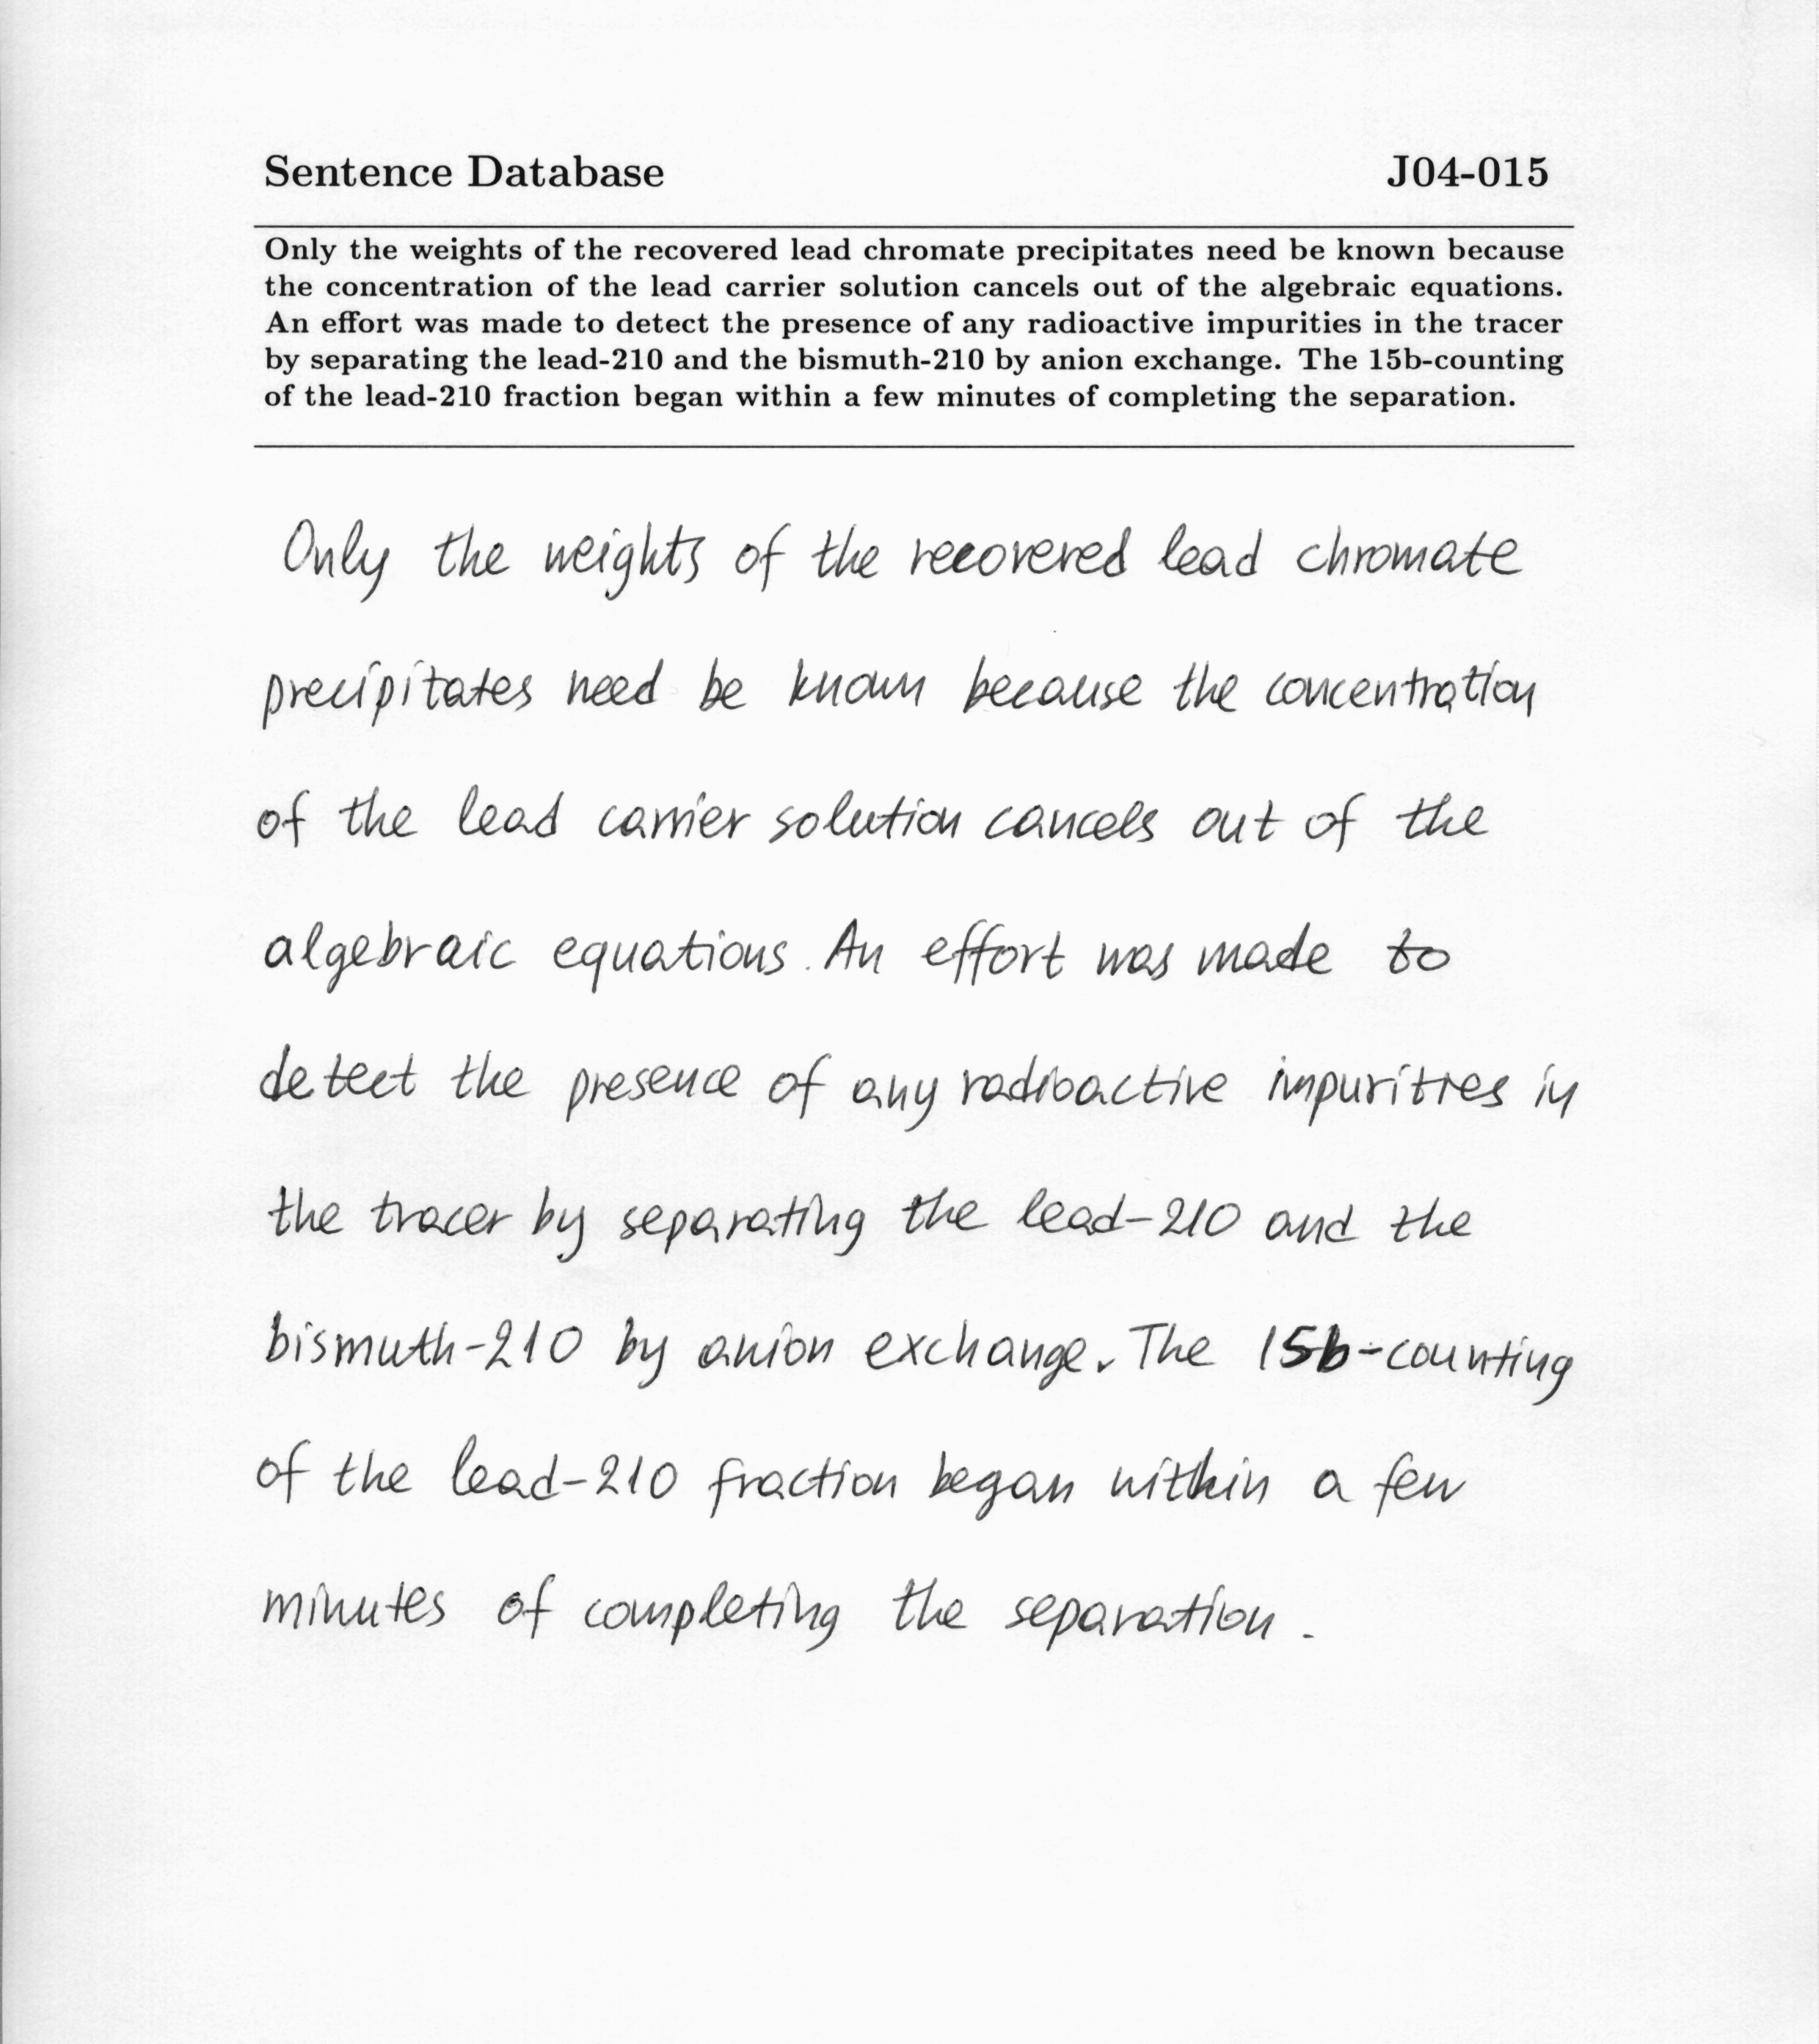 Sentence Database J04-015
Only the weights of the recovered lead chromate precipitates need be known because
the concentration of the lead carrier solution cancels out of the algebraic equations.
An effort was made to detect the presence of any radioactive impurities in the tracer
by separating the lead-210 and the bismuth-210 by anion exchange. The 15b-counting
of the lead-210 fraction began within a few minutes of completing the separation.
Only the weights of the recovered lead chromate
precipitates need be known because the concentration
of the lead carrier solution cancels out of the
algebraic equations. An effort was made to
detect the presence of any radioactive impurities in
the tracer by separating the lead-210 and the
bismuth-210 by anion exchange. The 15b-counting
of the lead-210 fraction began within a few
minutes of completing the separation.